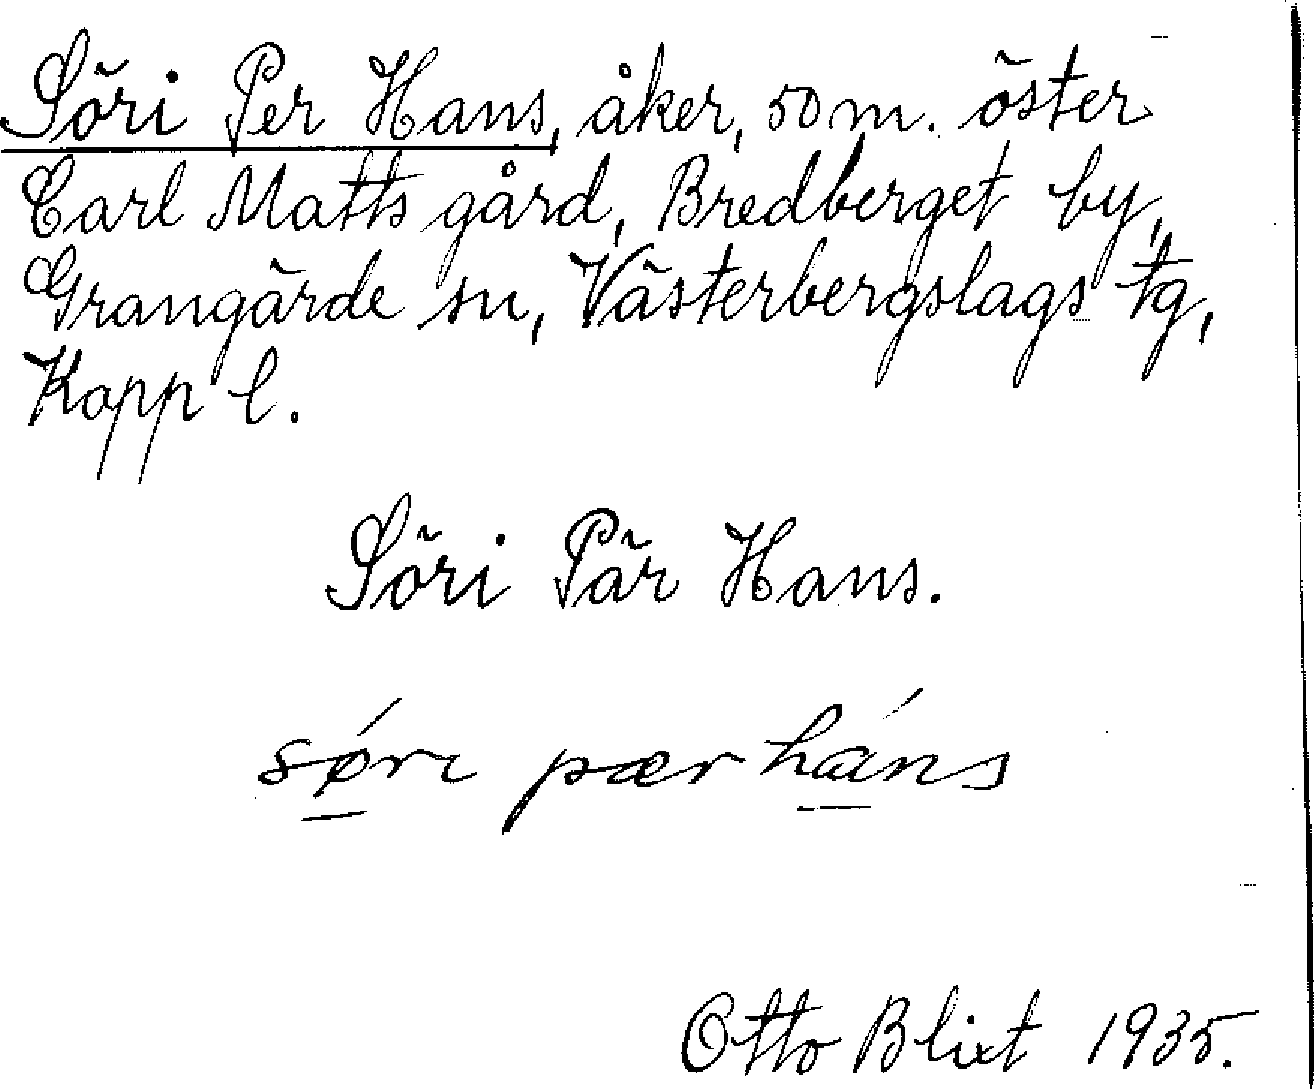 Söri Per Hans, åker, 50 m. öster
Carl Matts gård, Bredberget by,
Grangärde sn, Västerbergslags tg,
Kopp l.
Söri Pär Hans.
sǿ̱ri pær há̱ns
Otto Blixt 1935.